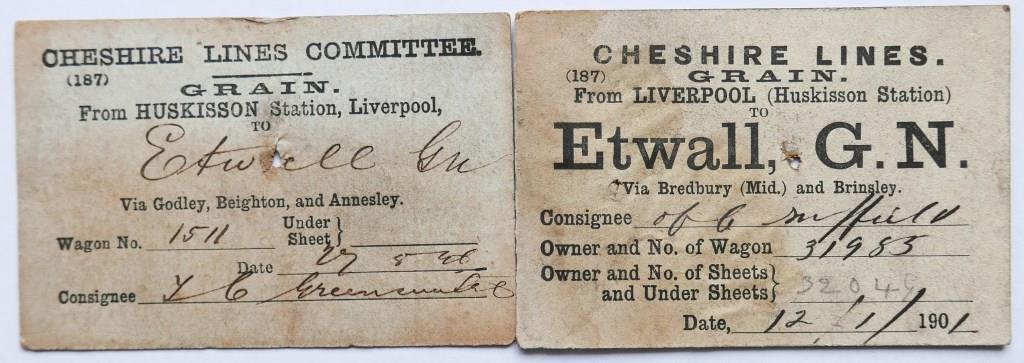 CHESHIRE LINES COMMITTEE.
(187)
GRAIN.
From HUSKISSON Station, Liverpool,
TO
Etwall Gn
Via Godley, Beighton, and Annesley.
Wagon No. 1511 Under Sheet }
Date 27 5
Consignee T C
CHESHIRE LINES.
(187) GRAIN.
From LIVERPOOL (Huskisson Station)
TO
Etwall, G.N.
Via Bredbury (Mid.) and Brinsley.
Consignee
Owner and No. of Wagon 31985
Owner and No. of Sheets }
and Under Sheets } 32049
Date, 12/1/1901